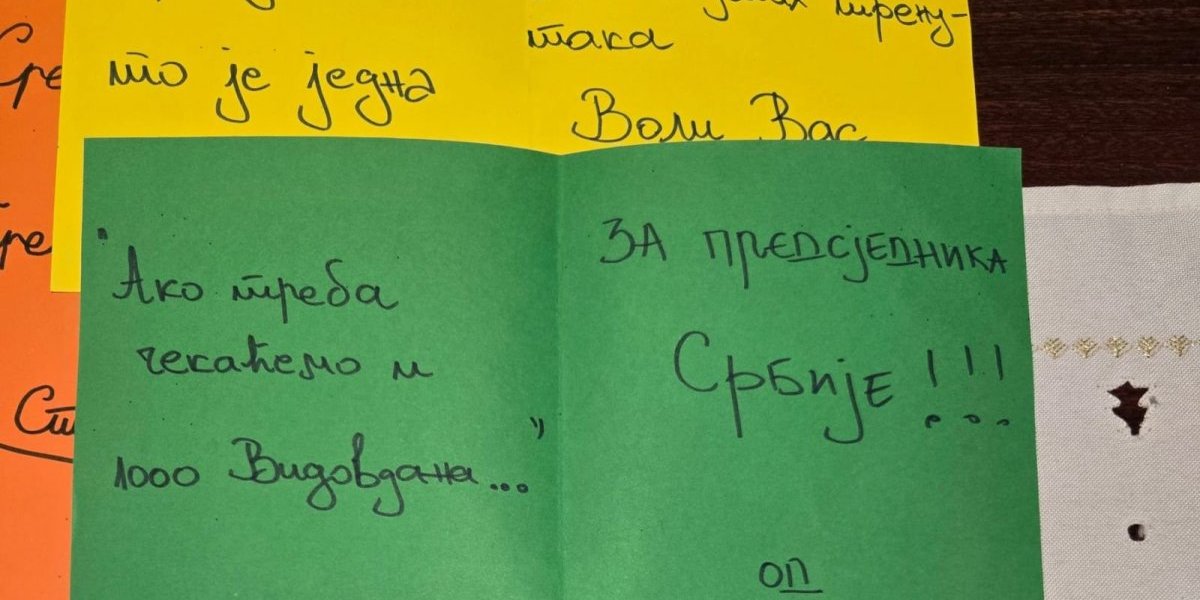 то је једна
тренутака
Воли Вас
"Ако треба
чекаћемо и
1000 Видовдана..."
ЗА ПРЕДСЈЕДНИКА
СРБИЈЕ!!!
ОП